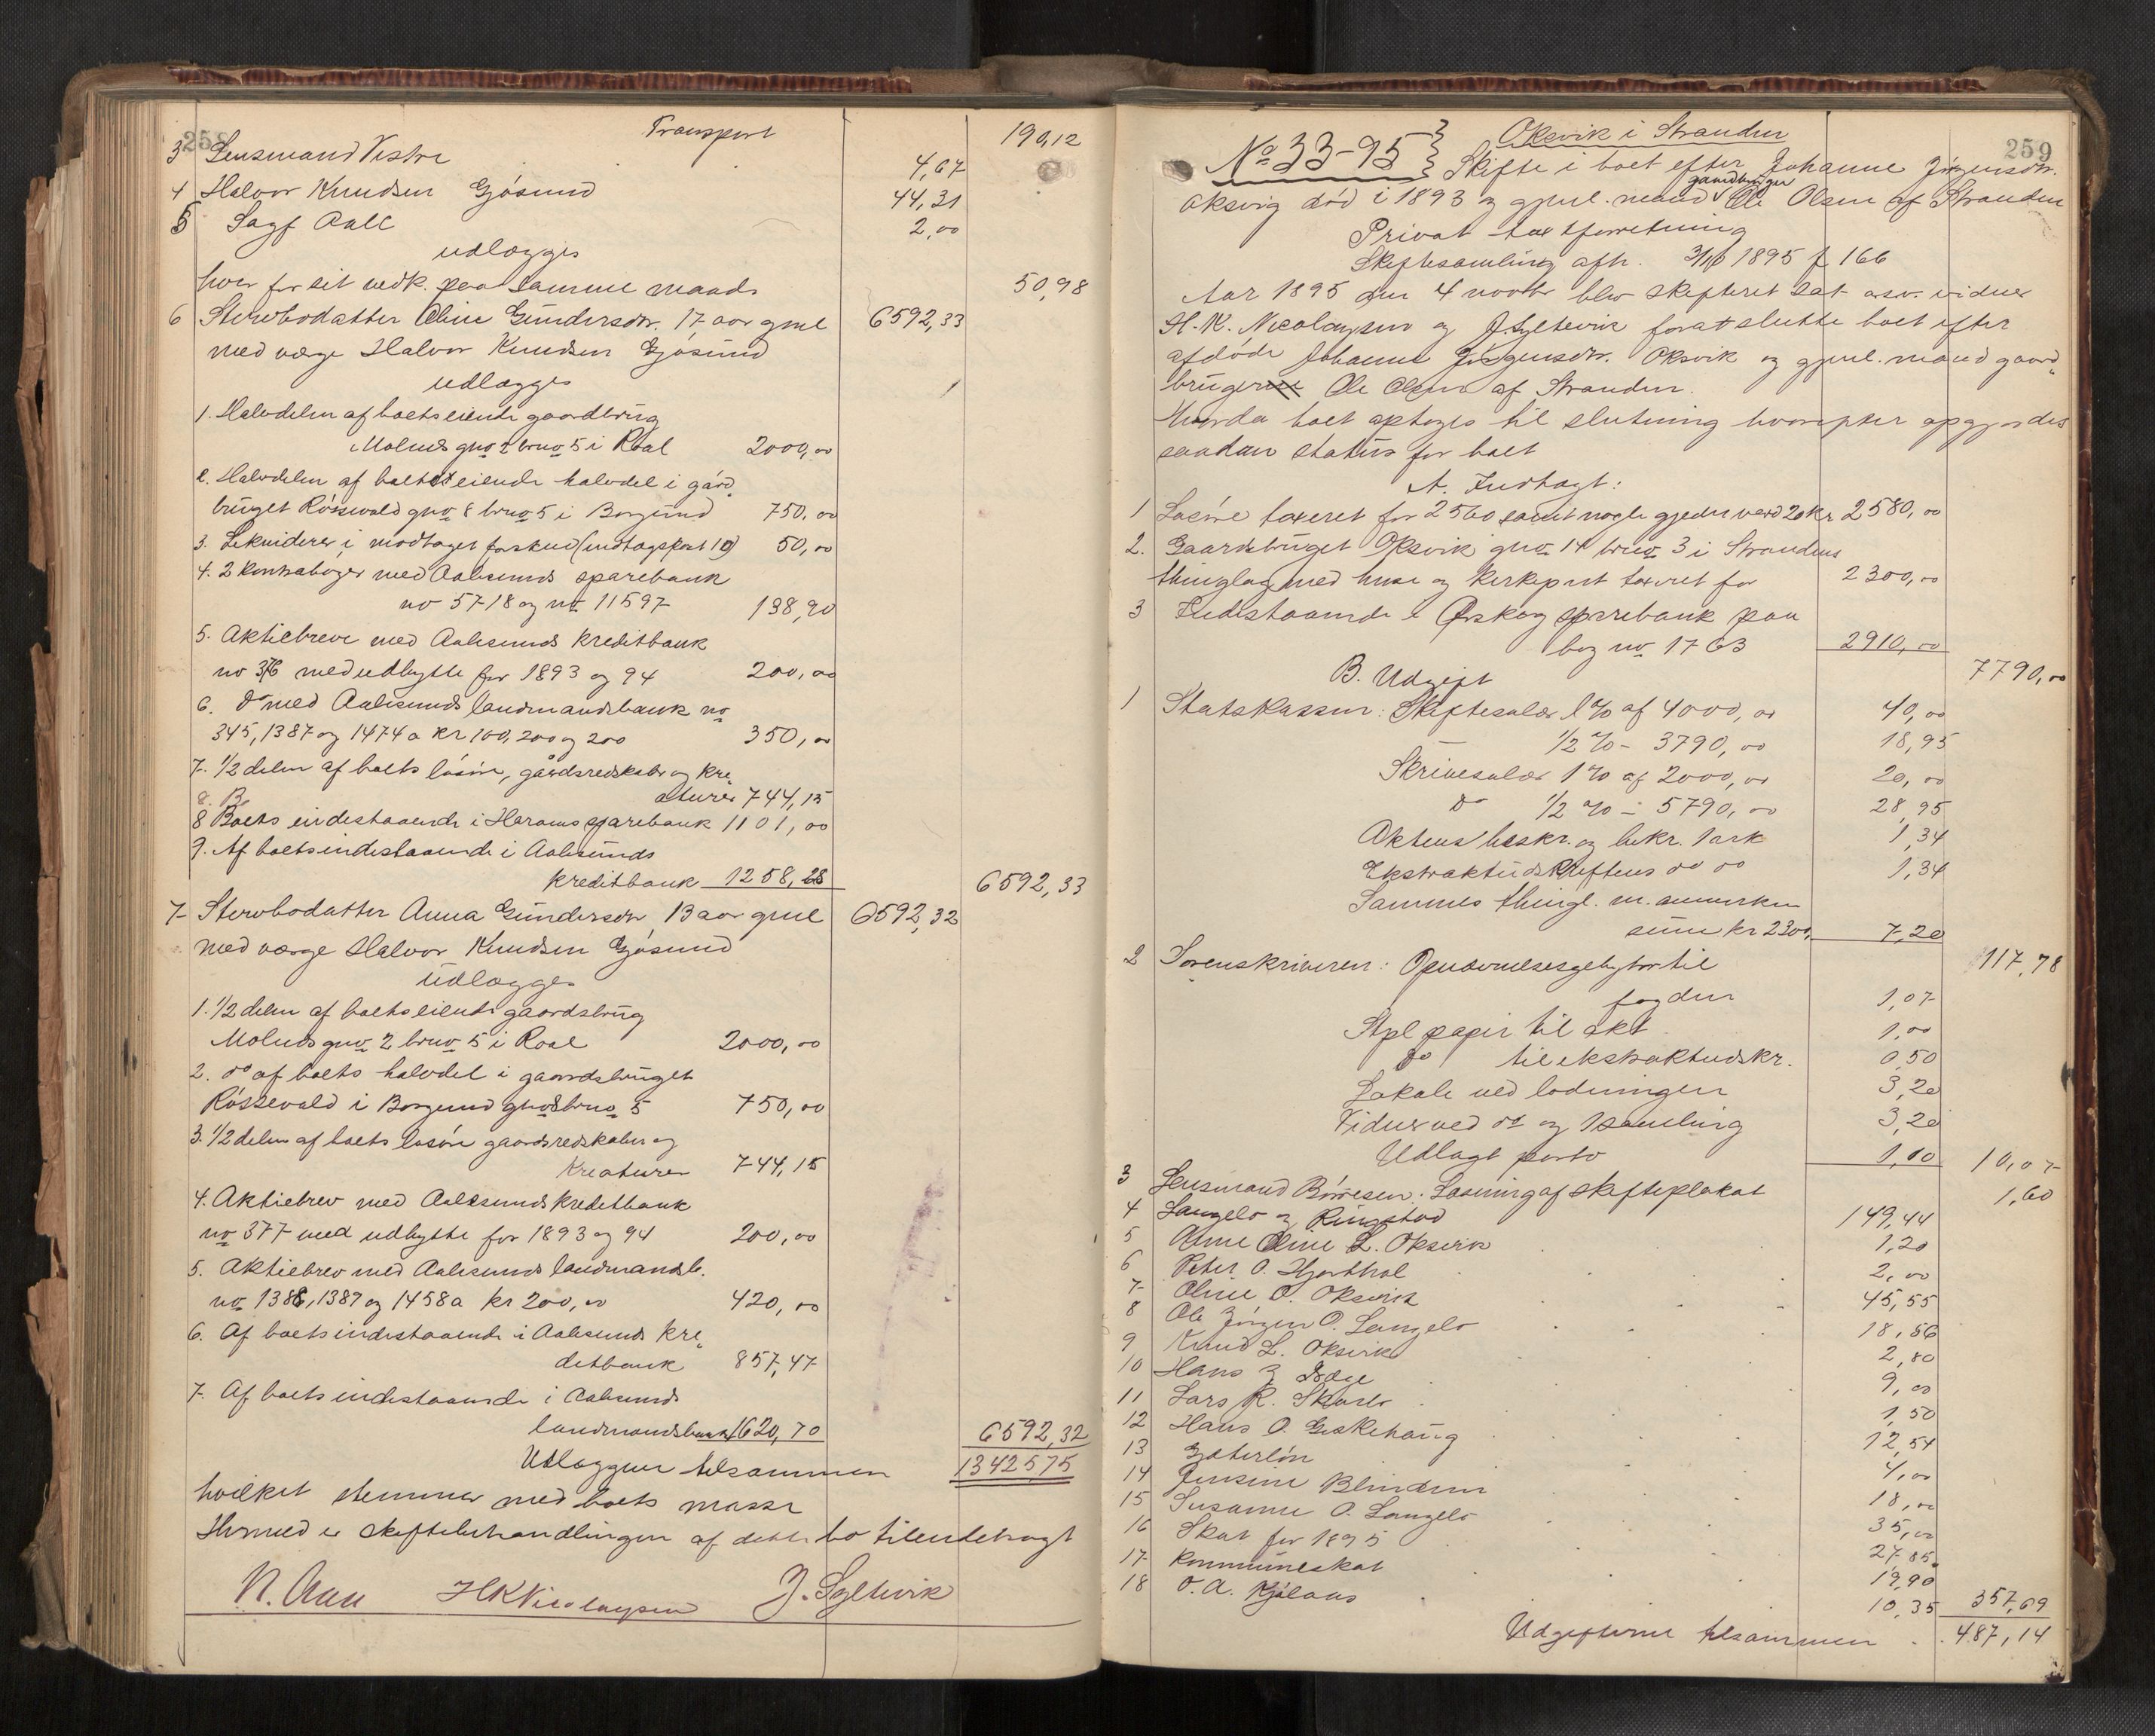 258
Transport 190,12
3 Lensmand Vestre 4,67
4 Halvor Knudsen Gjøsund 44,31
5 Sagf Aall 2,00
udlægges
hver for sit vedk. paa samme maade 50,98
6 Stervbodatter Oline Gundersdtr. 17 aar gml 6592,33
med værge Halvor Knudsen Gjøsund
udlægges
1. Halvdelen af boets eiende gaardbrug
Molnes gno 2 bruo 5 i Roal 2000,00
2. Halvdelen af boets eiende halvdel i gård„
bruget Røssevold gno 8 bruo 5 i Borgund 750,00
3. Likviderer i modtaget forskud (indtagspost 10) 50,00
4. 2 kontrabøger med Aalesunds sparebank
no 5718 og no 11597 138,90
5. Aktiebreve med Aalesunds kreditbank
no 376 med udbytte for 1893 og 94 200,00
6. do med Aalesunds landmandsbank no
345, 1387 og 1474 a kr 100, 200 og 200 350,00
7. 1/2 delen af boets løsøre, gårdsredskaber og kre„
8. B. aturer 744,15
8 Boets indestaaende i Harams sparebank 1101,00
9. Af boets indestaaende i Aalesunds
kreditbank 1258,28 6592,33
7 Stervbodatter Anna Gundersdtr 13 aar gml 6592,32
med værge Halvor Knudsen Gjøsund
udlægges
1. 1/2 delen af boets eiende gaardsbrug
Molnes gno 2 bruo 5 i Roal 2000,00
2. do af boets halvdel i gaardsbruget
Røssevold i Borgund gno 8 bruo 5 750,00
3. 1/2 delen af boets løsøre gaardsredskaber og
kreaturer 744,15
4. Aktiebrev med Aalesunds kreditbank
no 377 med udbytte for 1893 og 94 200,00
5. Aktiebrev med Aalesunds landmandsb.
no 1388, 1389 og 1458 a kr 200,00 420,00
6. Af boets indestaaende i Aalesunds kre„
ditbank 857,47
7. Af boets indestaaende i Aalesunds
landmandsbank 1620,70 6592,32
Udlæggene tilsammen 13425,75
hvilket stemmer med boets masse
Hermed er skiftebehandlingen af dette bo tilendebragt
N. Aall HKNicolaysen J. Syltevik
259
No 33-95 Oksvik i Stranden
Skifte i boet efter Johanne Jørgensdtr.
gaardbruger
Oksvig død i 1893 og gjenl. mand Ole Olsen af Stranden
Privat taxtforretning
Skiftesamling afh. 3/10 1895 f 166
Aar 1895 den 4 novbr blev skifteret sat asv. vidner
H. K. Nicolaysen og J Sylteviv forat slutte boet efter
afdøde Johanne Jørgensdtr. Oksvik og gjenl. mand gaard„
bruger Ole Olsen af Stranden.
boet optoges til slutning hvorefter opgjordes
saadan status for boet
A. Indtægt:
1 Løsøre taxeret for 2560 samt nogle gjeder værd 20 kr 2580,00
2. Gaardsbruget Oksvik gno 14 bruo 3 i Strandens
thinglag med huse og kirkepart taxeret for 2300,00
3 Indestaaende i Ørskog sparebank paa
bog no 1763 2910,00
7790,00
B. Udgift
1 Statskassen: Skiftesalær 1% af 4000,00 40,00
1/2 % - 3790,00 18,95
Skrivesalær 1% af 2000,00 20,00
do 1/2 % - 5790,00 28,95
Aktens beskr. og bekr. 1 ark 1,34
Ekstraktudskriftens do do 1,34
Sammes thingl. m. anmerken
sum kr 2300, 7,20
117,78
2 Sorenskriveren: Opnævnelsesgebyhr til
fogden 1,07
Stpl papir til akt 1,00
do til ekstraktudskr. 0,50
Lokale ved lodningen 3,20
Vidner ved do og 1 samling 3,20
Udlagt porto 1,10 10,07
3 Lensmand Børresen: Læsning af skifteplakat 1,60
4 Langelo og Ringstad 149,44
5 Ane Oline L. Oksvik 1,20
6 Peter O. Hjorthol 2,00
7 Oline O. Oksvik 45,55
8 Ole Jørgen O. Langelo 18,56
9 Knud L. Oksvik 2,80
10 Hans J 9,00
11 Lars K. 1,50
12 Hans O. Geskehaug 12,54
13 4,00
14 Jensine Blindem 18,00
15 Susanne O. Langelo 35,00
16 Skat for 1895 27,85
17 Kommuneskat 19,90
18 O. A. 10,35 357,69
Udgifterne tilsammen 487,14